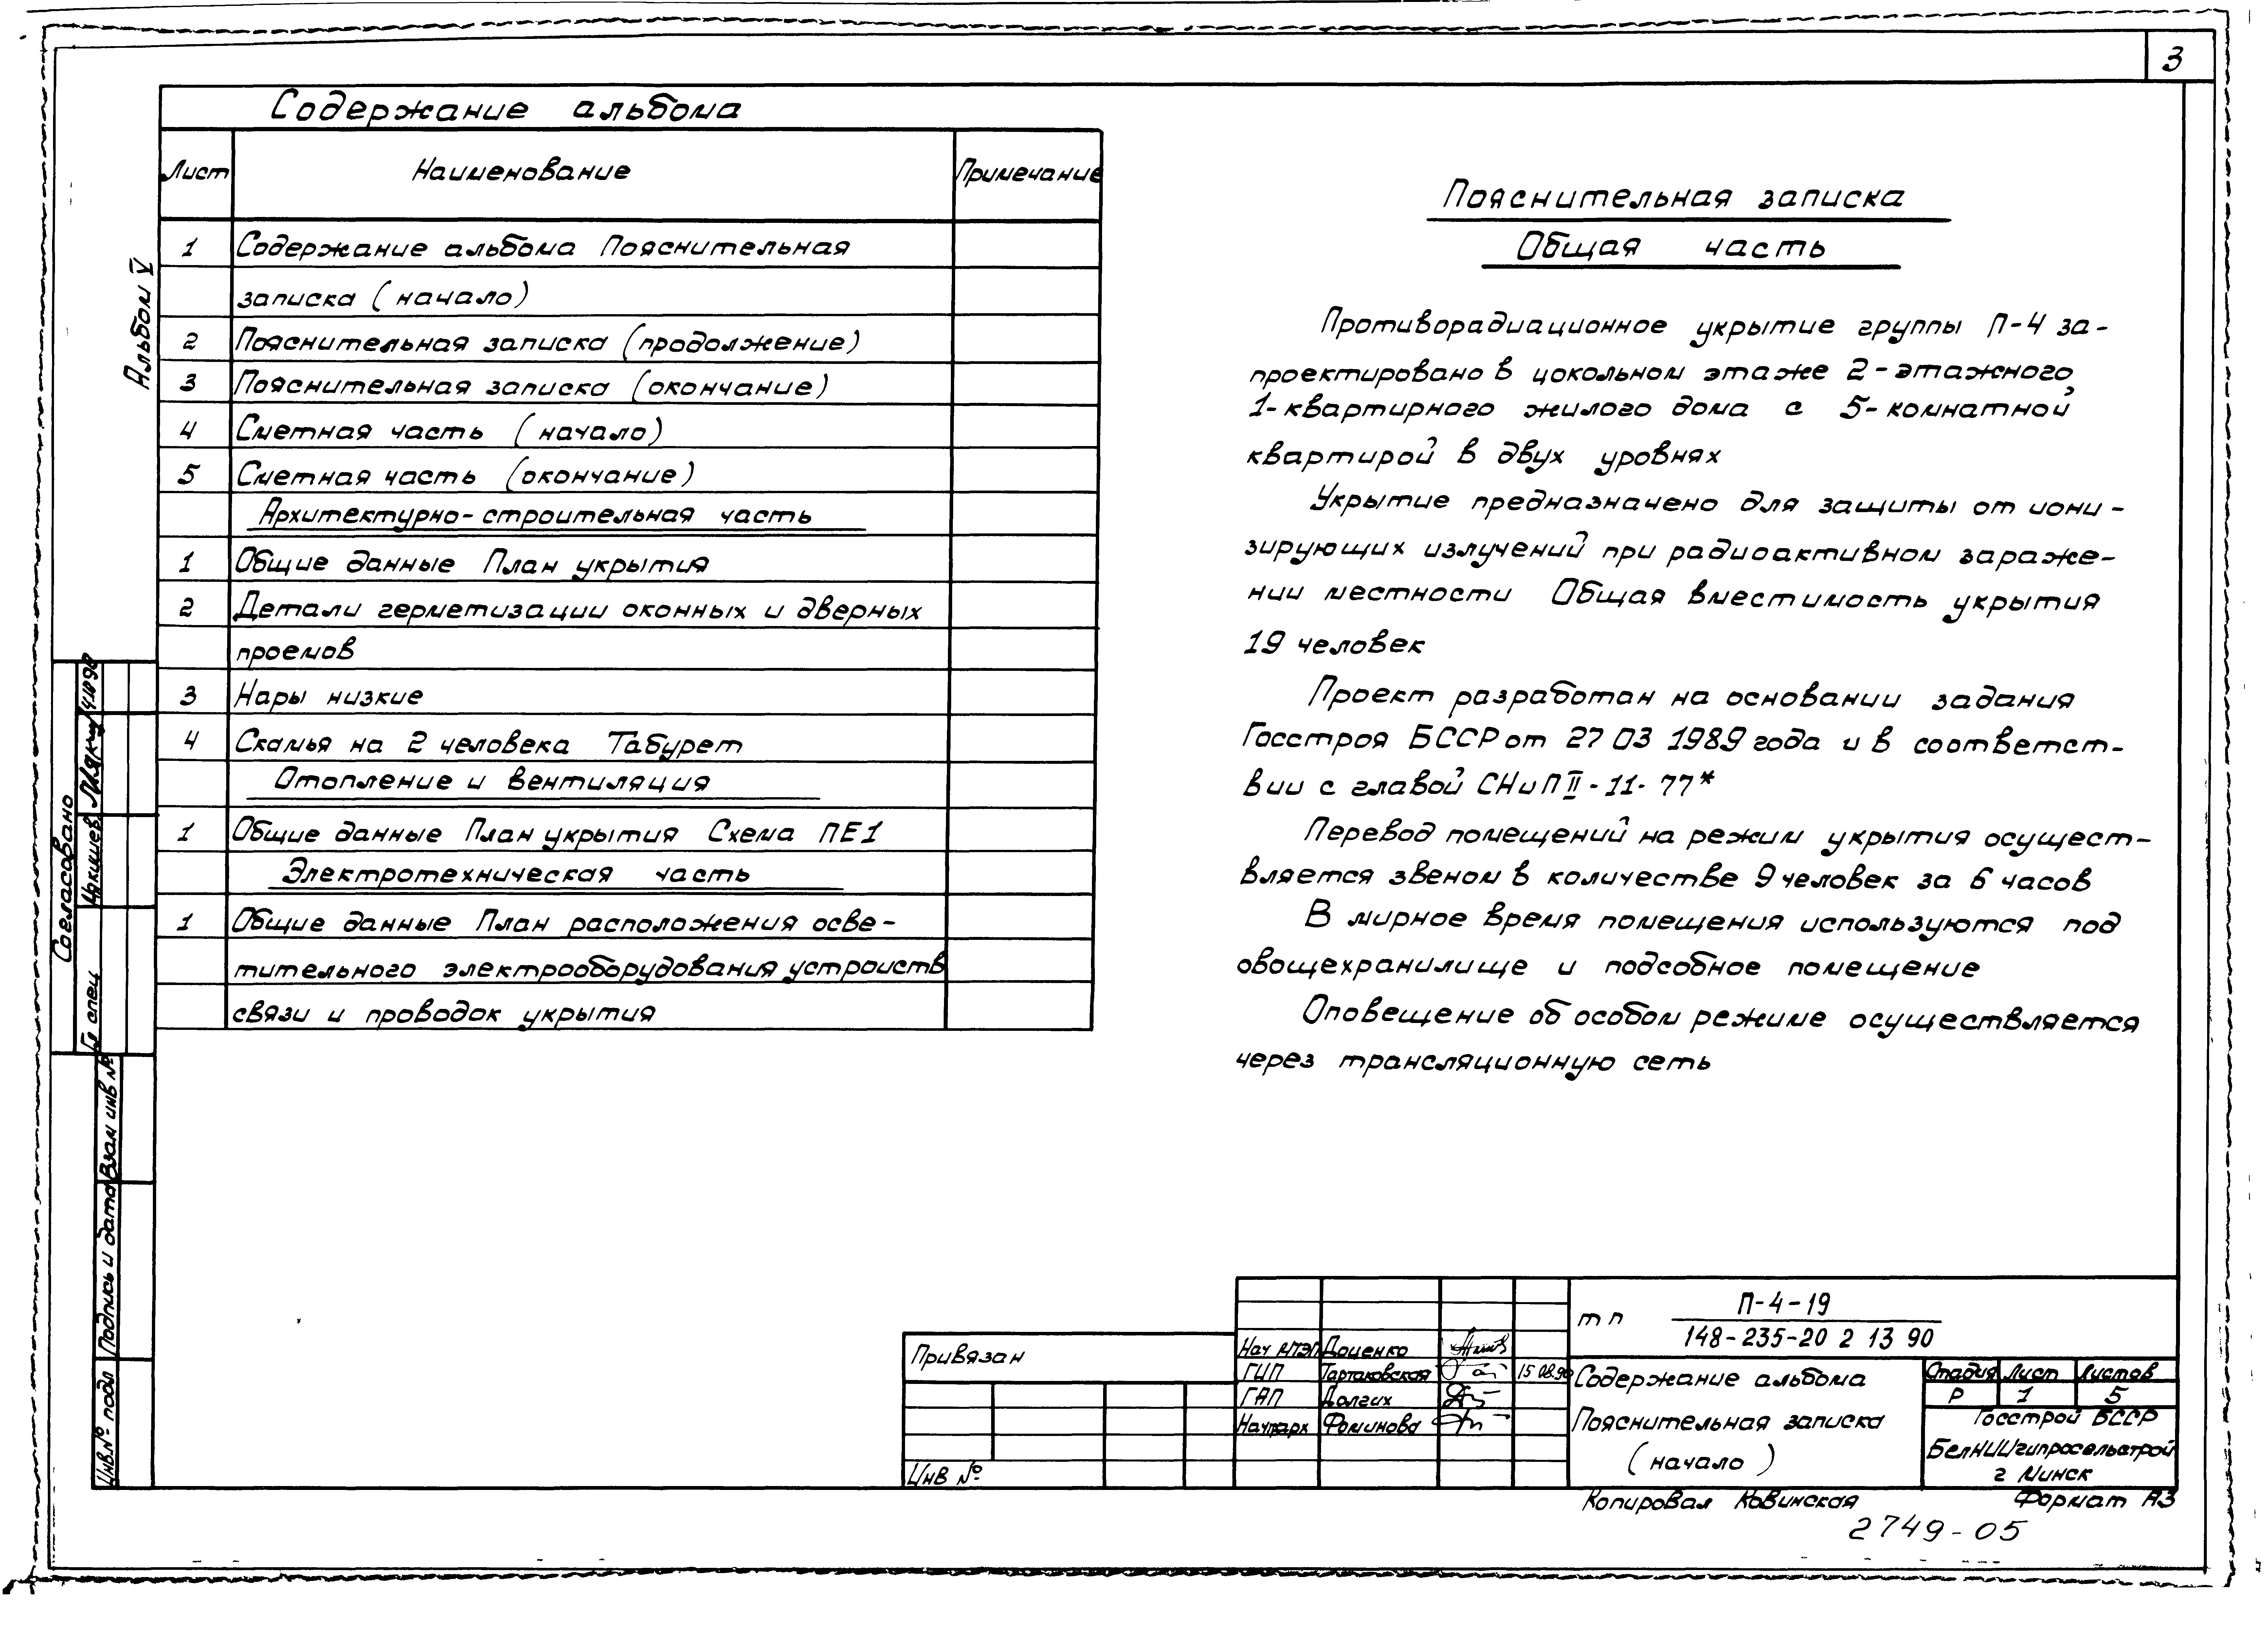 3
Содержание альбома
Лист Наименование Примечание
1 Содержание альбома Пояснительная
записка (начало)
2 Пояснительная записка (продолжение)
3 Пояснительная записка (окончание)
4 Сметная часть (начало)
5 Сметная часть (окончание)
Архитектурно-строительная часть
1 Общие данные План укрытия
2 Детали герметизации оконных и дверных
проемов
3 Нары низкие
4 Скамья на 2 человека Табурет
Отопление и вентиляция
1 Общие данные План укрытия Схема ПЕ1
Электротехническая часть
1 Общие данные План расположения осве-
тительного электрооборудования устроиств
связи и проводок укрытия
Альбом V
Согласовано
Гл спец
Взам инв №
Подпись и дата
Инв.№ подл
Пояснительная записка
Общая часть
Противорадиационное укрытие группы П-4 за-
проектировано в цокольном этаже 2-этажного,
1-квартирного жилого дома с 5-комнатной
квартирой в двух уровнях
Укрытие предназначено для защиты от иони-
зирующих излучений при радиоактивном зараже-
нии местности Общая вместимость укрытия
19 человек
Проект разработан на основании задания
Госстроя БССР от 27 03 1989 года и в соответст-
вии с главой СНиП II-11-77*
Перевод помещений на режим укрытия осущест-
вляется звеном в количестве 9 человек за 6 часов
В мирное время помещения используются под
овощехранилище и подсобное помещение
Оповещение об особом режиме осуществляется
через трансляционную сеть
Привязан
Инв №
Нач Доценко
ГИП Тартаковская 15 08.90
ГАП Долгих
Фоминова
т п П-4-19
148-235-20 2 13 90
Содержание альбома
Пояснительная записка
(начало)
Стадия Лист Листов
Р 1 5
Госстрой БССР
БелНИИгипросельстрой
г Минск
Копировал Ковинская Формат А3
2749-05